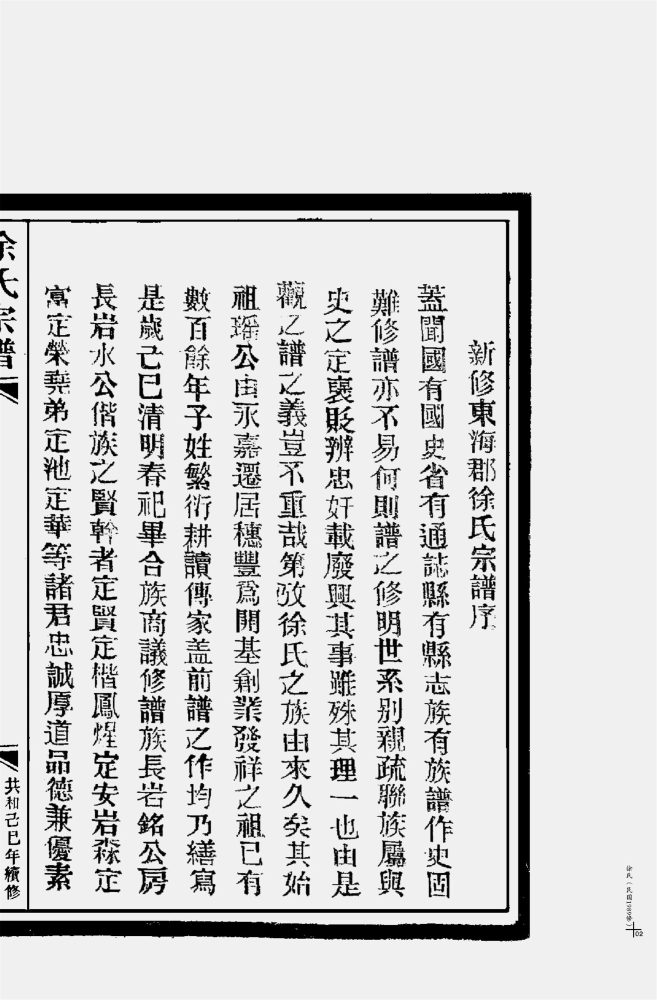 新修東海郡徐氏宗譜序
蓋聞國有國史省有通誌縣有縣志族有族譜作史固
難修譜亦不易何則譜之修明世系别親疏聯族屬與
史之定襃貶辨忠奸載廢興其事雖殊其理一也由是
觀之譜之義豈不重哉第攷徐氏之族由來久矣其始
祖瑶公由永嘉遷居穗豐爲開基創業發祥之祖已有
數百餘年子姓繁衍耕讀傳家盖前譜之作均乃繕寫
是歲己巳清明春祀畢合族商議修譜族長岩銘公房
長岩水公偕族之賢幹者定賢定楷鳳煋定安岩森定
富定榮堯弟定池定華等諸君忠誠厚道品德兼優素
徐氏宗譜
共和己巳年續修
徐氏（民国1989修）
02